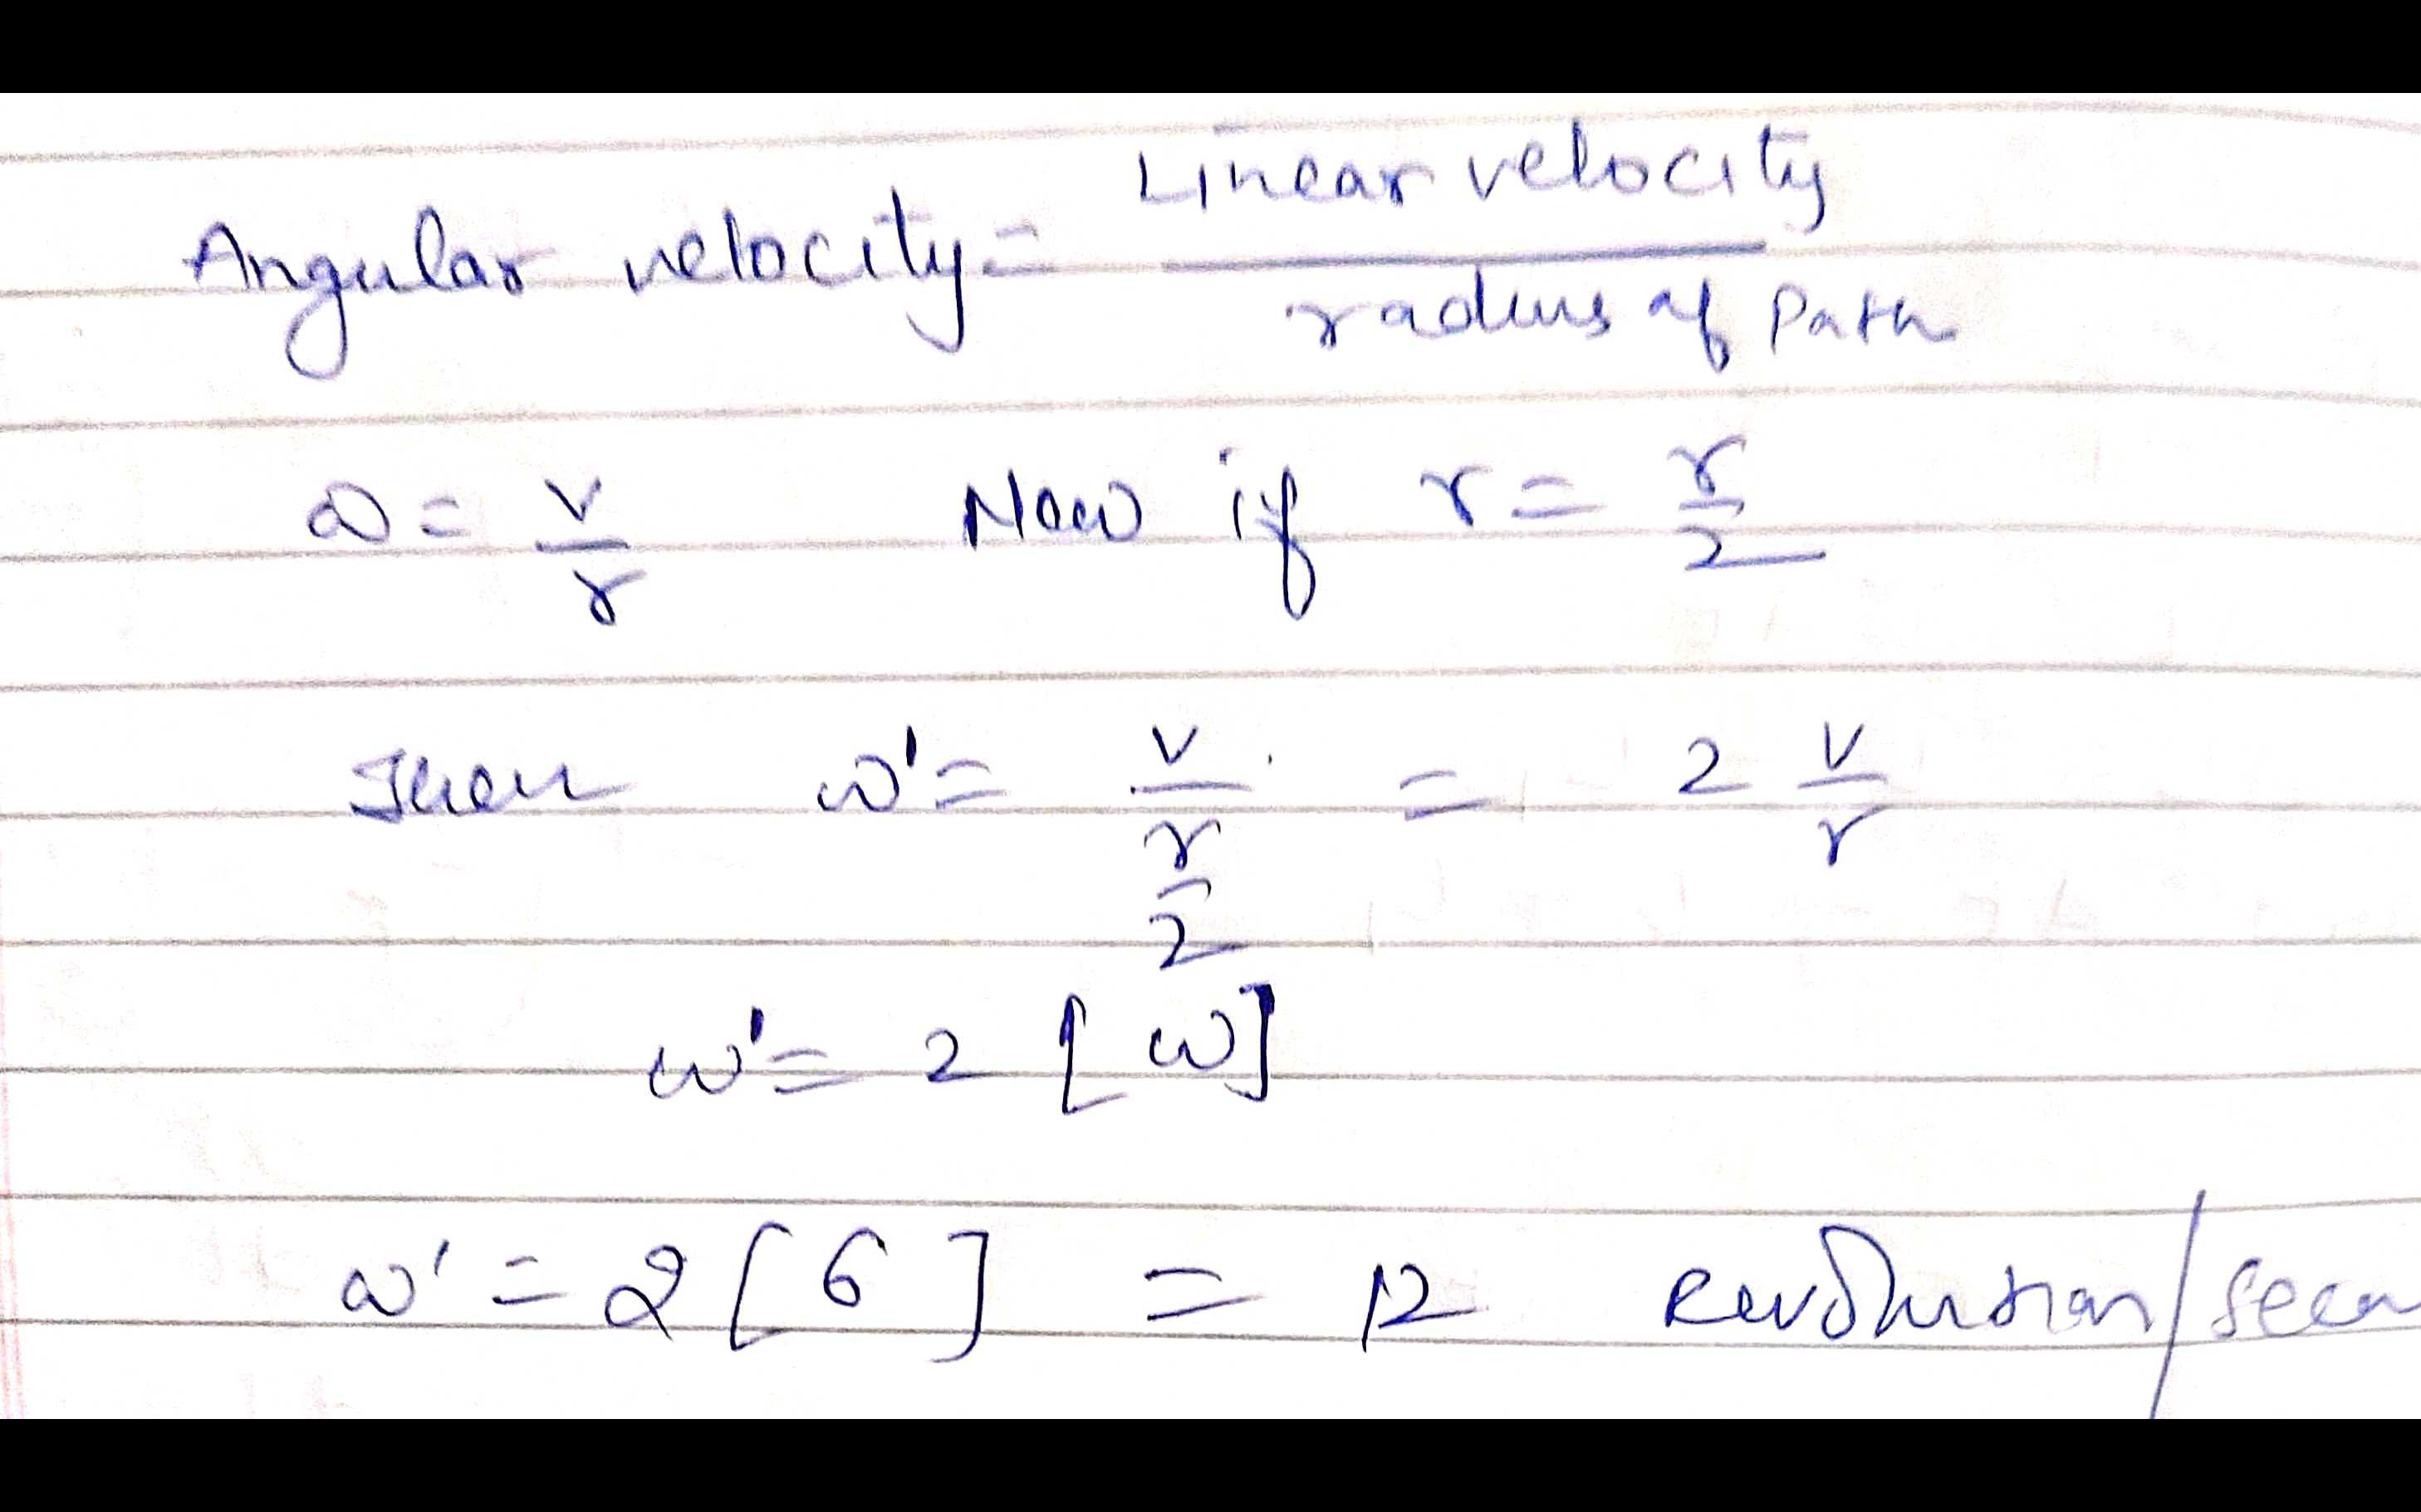 Linear velocity
Angular velocity = 
radius of Path
ω = v/r Now if r = r/2
Then ω' = v/(r/2) = 2 v/r
ω' = 2 [ω]
ω' = 2 [6] = 12 Revolution/